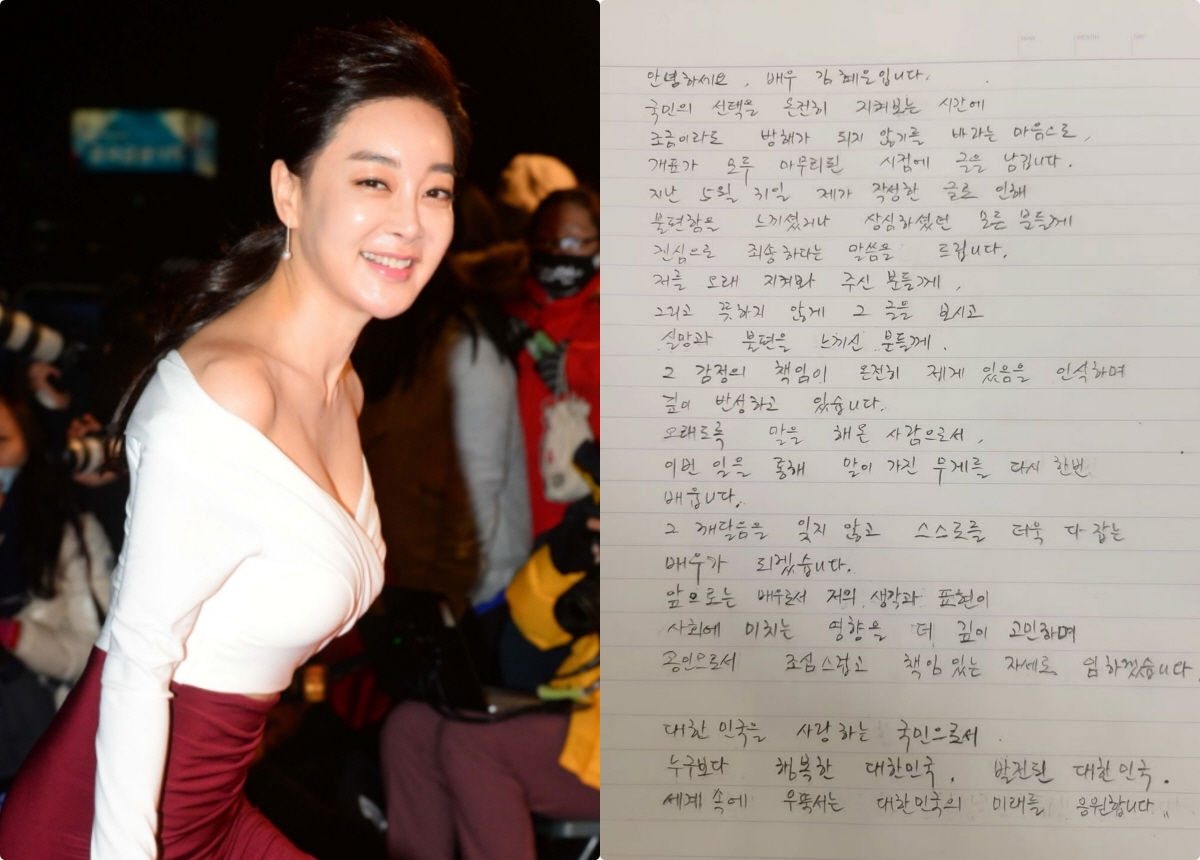 안녕하세요, 배우 김혜은입니다.
국민의 선택을 온전히 지켜보는 시간에
조금이라도 방해가 되지 않기를 바라는 마음으로,
개표가 모두 마무리된 시점에 글을 남깁니다.
지난 5월 31일 제가 작성한 글로 인해
불편함을 느끼셨거나 상심하셨던 모든 분들께
진심으로 죄송하다는 말씀을 드립니다.
저를 오래 지켜봐 주신 분들께,
그리고 뜻하지 않게 그 글을 보시고
실망과 불편을 느끼신 분들께.
그 감정의 책임이 온전히 제게 있음을 인식하며
깊이 반성하고 있습니다.
오래도록 말을 해온 사람으로서,
이번 일을 통해 말이 가진 무게를 다시 한번
배웁니다.
그 깨달음을 잊지 않고 스스로를 더욱 다잡는
배우가 되겠습니다.
앞으로는 배우로서 저의 생각과 표현이
사회에 미치는 영향을 더 깊이 고민하며
공인으로서 조심스럽고 책임있는 자세로 임하겠습니다
대한민국을 사랑하는 국민으로서.
누구보다 행복한 대한민국, 발전된 대한민국.
세계 속에 우뚝서는 대한민국의 미래를 응원합니다..